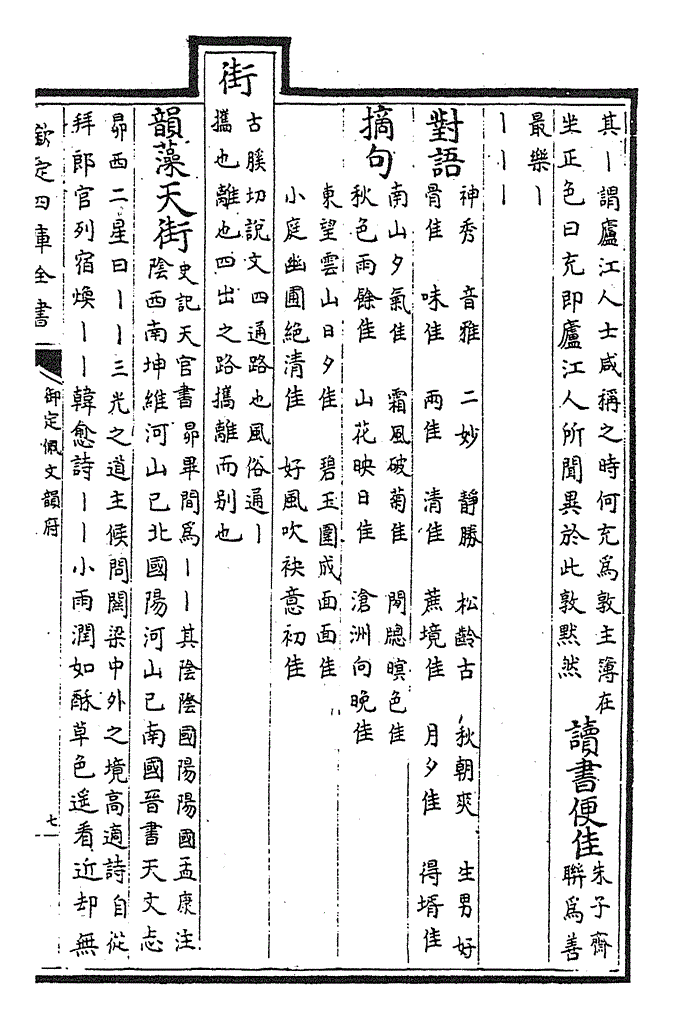 其丨謂廬江人士咸稱之時何充爲敦主簿在
坐正色曰充即廬江人所聞異於此敦默然
讀書便佳
朱子齋
聯爲善
最樂丨
丨丨丨
對語
神秀 音雅 二妙 靜勝 松齡古 秋朝爽 生男好
骨佳 味佳 兩佳 清佳 蔗境佳 月夕佳 得壻佳
摘句
南山夕氣佳 霜風破菊佳 閑牕暝色佳
秋色雨餘佳 山花映日佳 滄洲向晚佳
東望雲山日夕佳 碧玉圍成面面佳
小庭幽圃絶清佳 好風吹袂意初佳
街
古膎切說文四通路也風俗通丨
攜也離也四出之路攜離而别也
韻藻
天街
史記天官書昴畢間爲丨丨其陰陰國陽陽國孟康注
陰西南坤維河山已北國陽河山已南國晉書天文志
昴西二星曰丨丨三光之道主候問關梁中外之境高適詩自從
拜郎官列宿煥丨丨韓愈詩丨丨小雨潤如酥草色遥看近却無
欽定四庫全書
御定佩文韻府
七